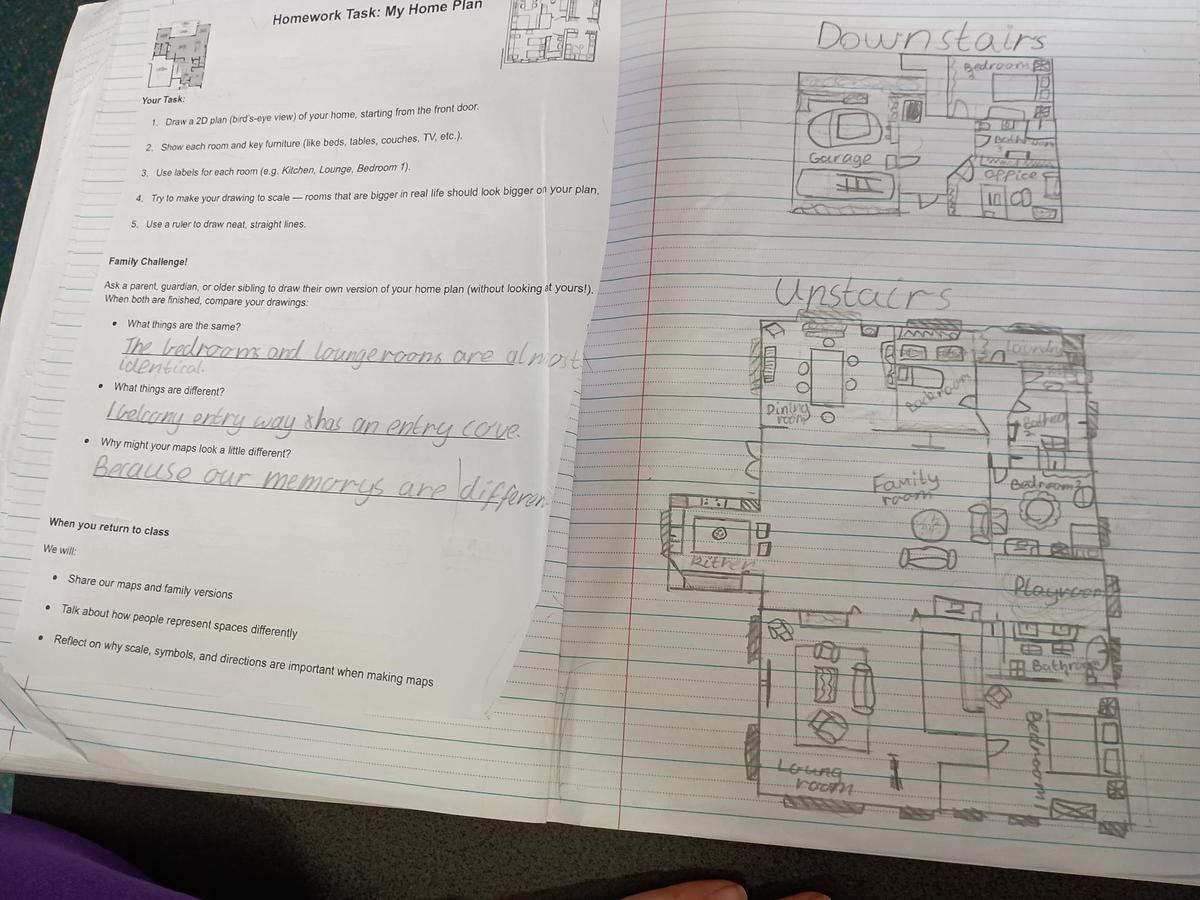 Homework Task: My Home Plan
Your Task:
1. Draw a 2D plan (bird's-eye view) of your home, starting from the front door.
2. Show each room and key furniture (like beds, tables, couches, TV, etc.).
3. Use labels for each room (e.g. Kitchen, Lounge, Bedroom 1).
4. Try to make your drawing to scale — rooms that are bigger in real life should look bigger on your plan.
5. Use a ruler to draw neat, straight lines.
Family Challenge!
Ask a parent, guardian, or older sibling to draw their own version of your home plan (without looking at yours!).
When both are finished, compare your drawings:
• What things are the same?
The bedrooms and lounge rooms are almost
identical.
• What things are different?
entry way has an entry
• Why might your maps look a little different?
Because our memorys are differen
When you return to class
We will:
• Share our maps and family versions
• Talk about how people represent spaces differently
• Reflect on why scale, symbols, and directions are important when making maps
Downstairs
Bedroom
3
Garage
Office
Upstairs
Laundry
Dining
room
Family
room
Bedroom 2
Playroom
Bathroom
Loung
room
Bedroom 1